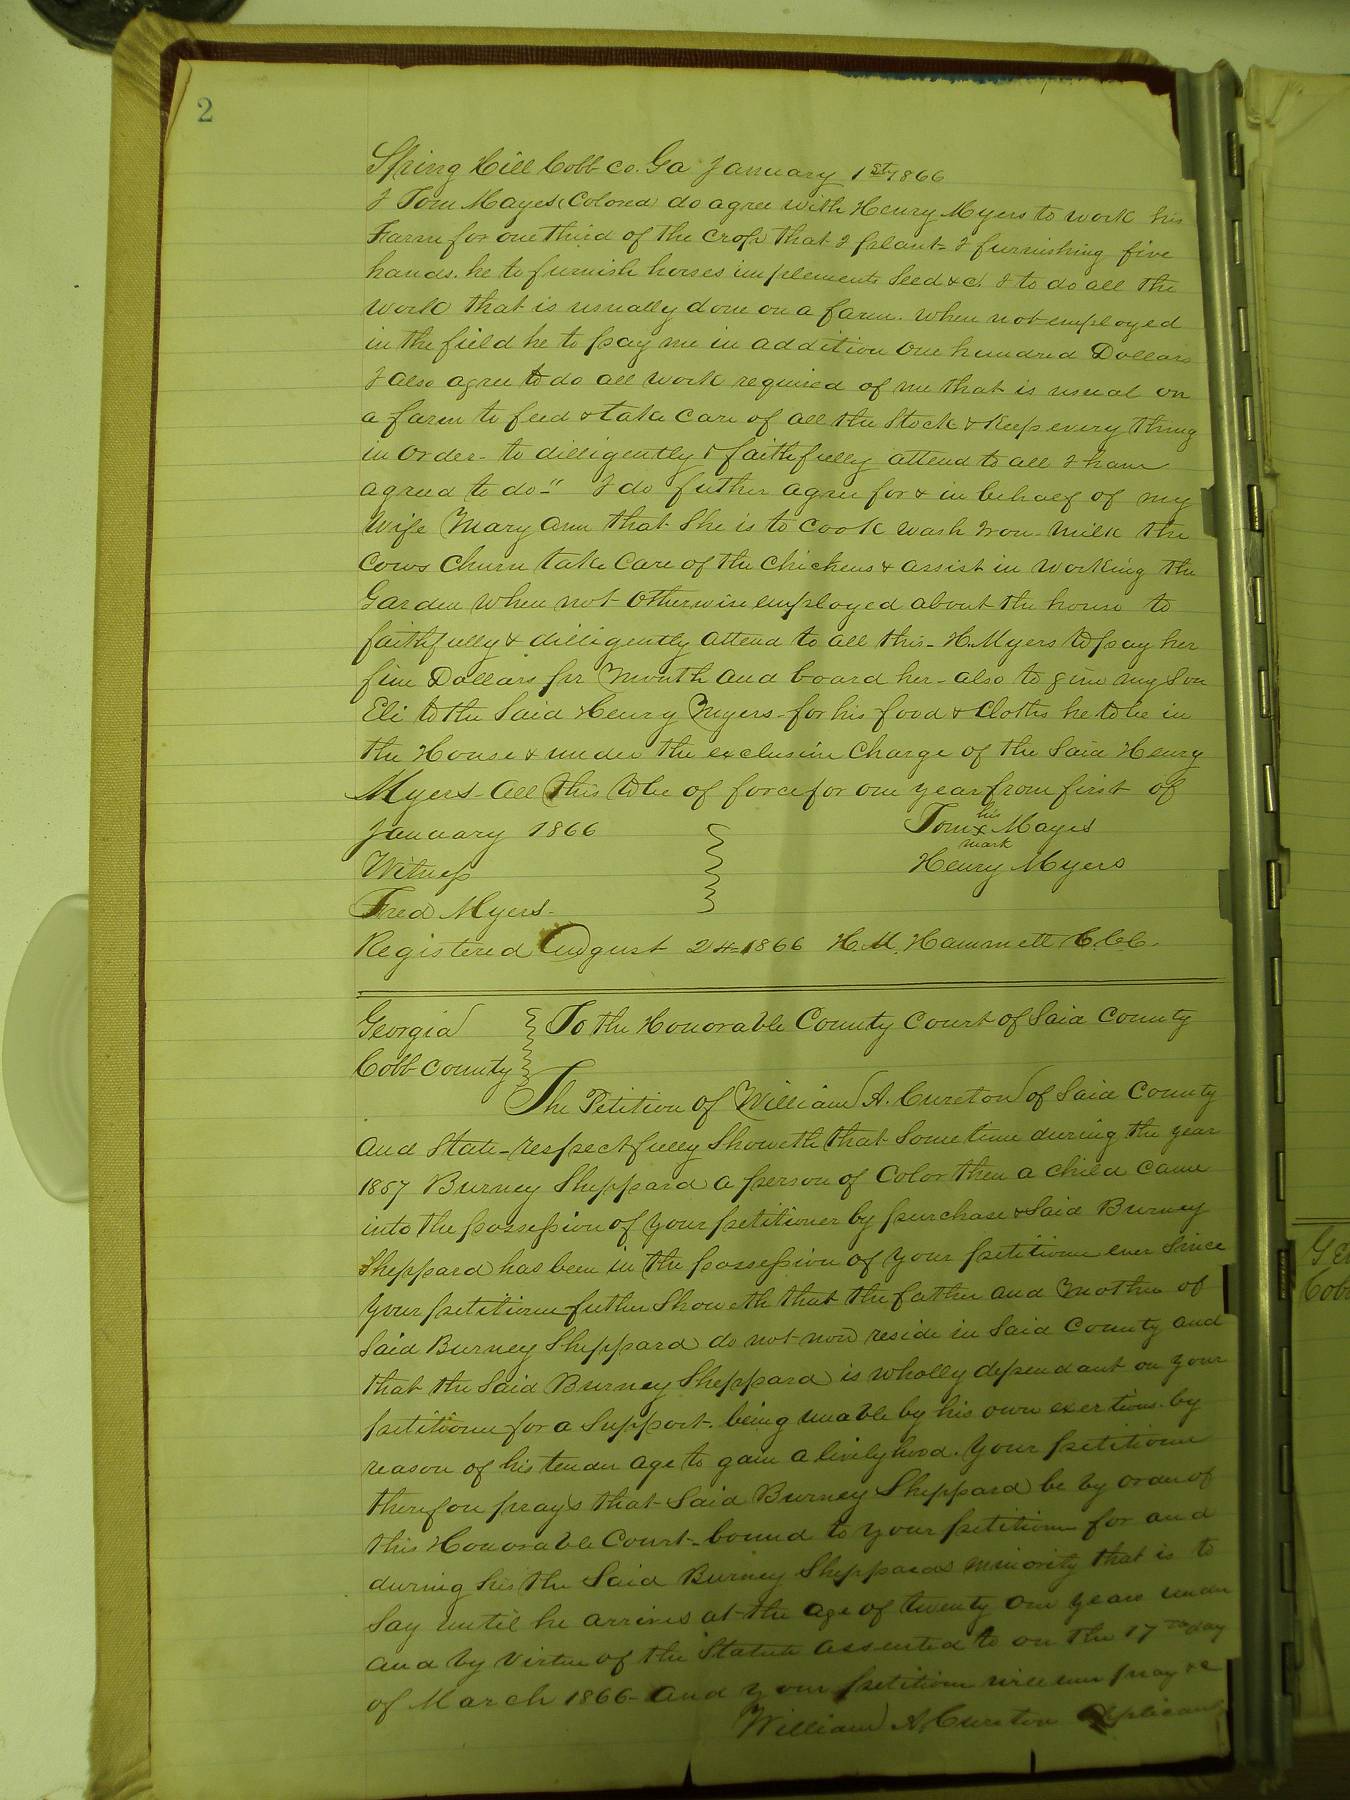 2
Spring Hill Cobb co. Ga January 1st 1866
I Tom Mayes (Colored) do agree with Henry Myers to work his
Farm for one third of the crop that I plant - I furnishing five
hands. he to furnish horses implements Seed &c. I to do all the
work that is usually done on a farm. when not employed
in the field he to pay me in addition One hundred Dollars
I also agree to do all work required of me that is usual on
a farm to feed & take care of all the Stock & Keep every thing
in order - to dilligently & faithfully attend to all I have
agreed to do -" I do futher agree for & in behalf of my
Wife Mary Ann that She is to Cook wash Iron - Milk the
Cows Churn take Care of the Chickens & assist in working the
Garden when not otherwise employed about the house to
faithfully & dilligently attend to all this - H. Myers to pay her
five Dollars pr Month and board her - also to give my Son
Eli to the Said Henry Myers - for his food & Cloths he to be in
the House & under the exclusive Charge of the Said Henry
Myers - All this to be of force for one year from first of
January 1866
Tom his x mark Mayes
Witness
Henry Myers
Fred Myers -
Registered August 24 - 1866 H. M. Hammett C.C.C.
Georgia
To the Honorable County Court of Said County
Cobb County
The Petition of William A. Cureton of Said County
and State - respectfully Showeth that Sometime during the year
1857 Burney Sheppard a person of Color then a child came
into the possession of your petitioner by purchase & Said Burney
Sheppard has been in the possession of your petitioner ever Since
your petitioner futher Showeth that the father and Mother of
Said Burney Sheppard do not now reside in Said County and
that the Said Burney Sheppard is wholly dependant on your
petitioner for a Support. being unable by his own exertions. by
reason of his tender age to gain a livlyhood. Your petitioner
therefore prays that Said Burney Sheppard be by order of
this Honorable Court - bound to your petitioner for and
during his the Said Burney Sheppards minority that is to
Say until he arrives at the age of twenty one years under
and by virtue of the Statute assented to on the 17 day
of March 1866 - And your petitioner will ever pray &c
William A. Cureton Applicant